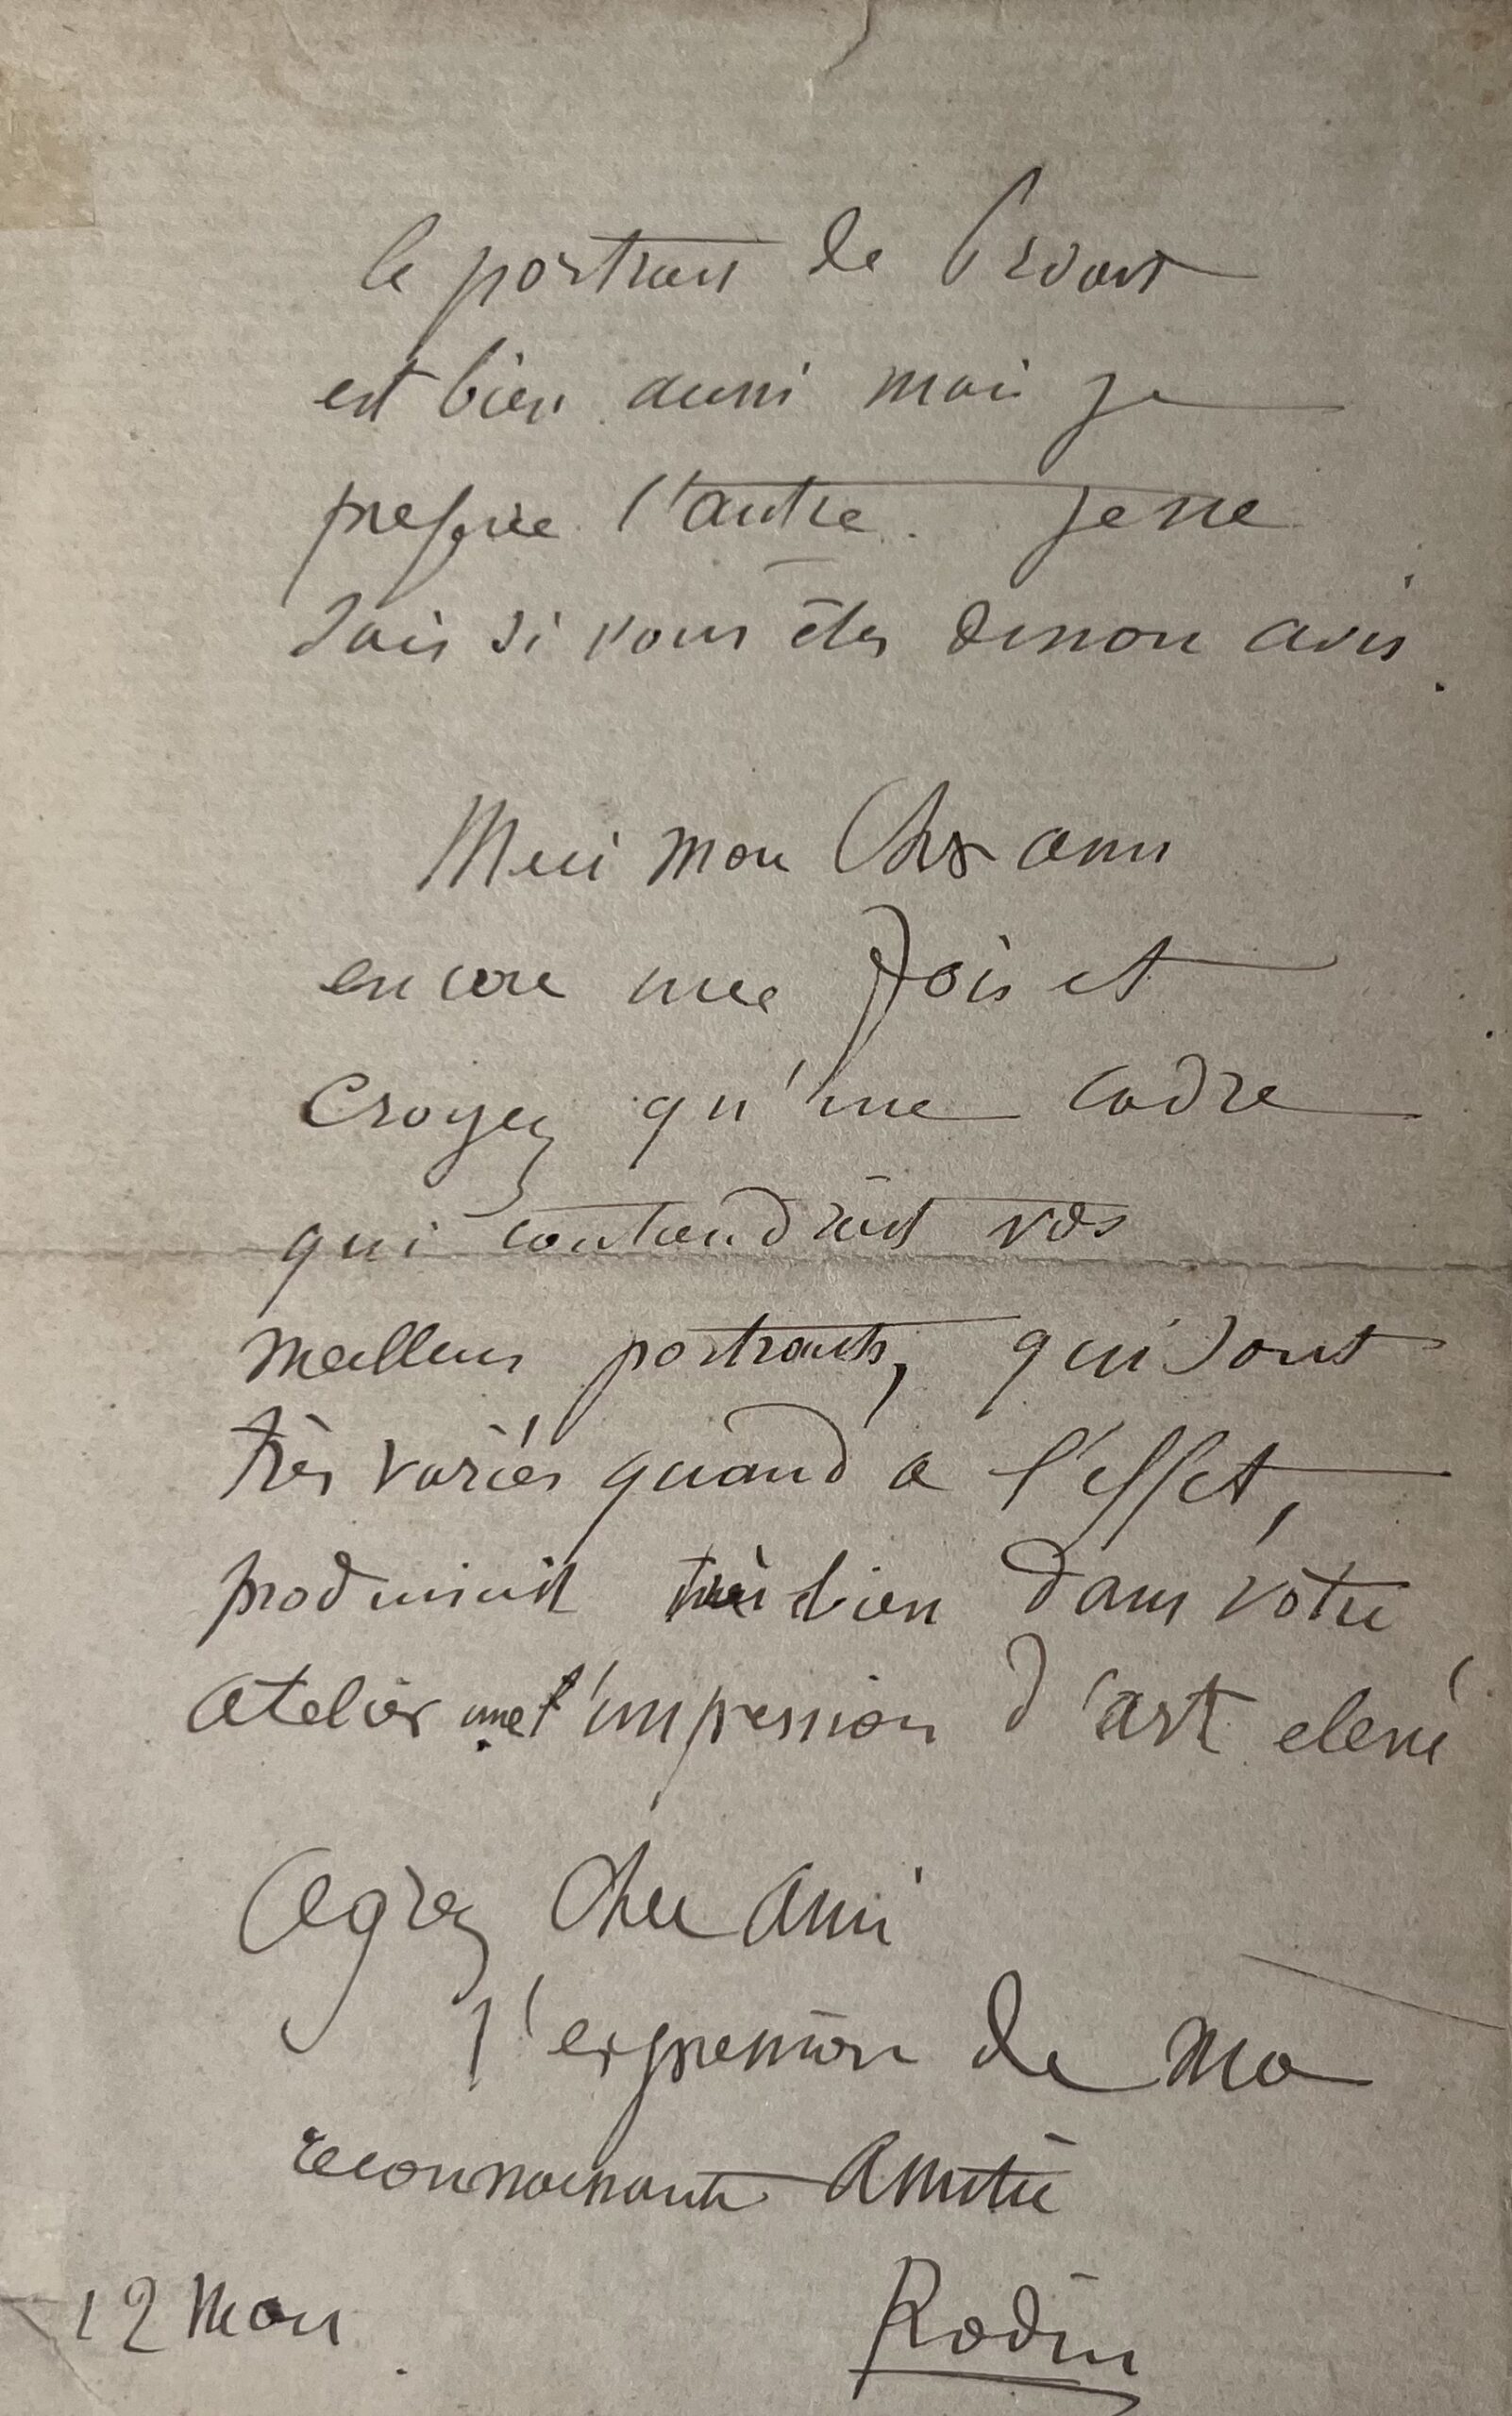 le portrait de Prvost
est bien aussi mais je
prefere l'autre. je ne
sais si vous êtes de mon avis.
Merci mon Cher ami
encore une fois et
croyez qu'une cadre
qui contandrait vos
meilleurs portraits, qui sont
très variés quand a l'effet,
produirait très bien dans votre
atelier une l'impression d'art elevé
Agrez Cher Ami
l'expression de ma
reconnaissante Amitié
12 Mars
Rodin